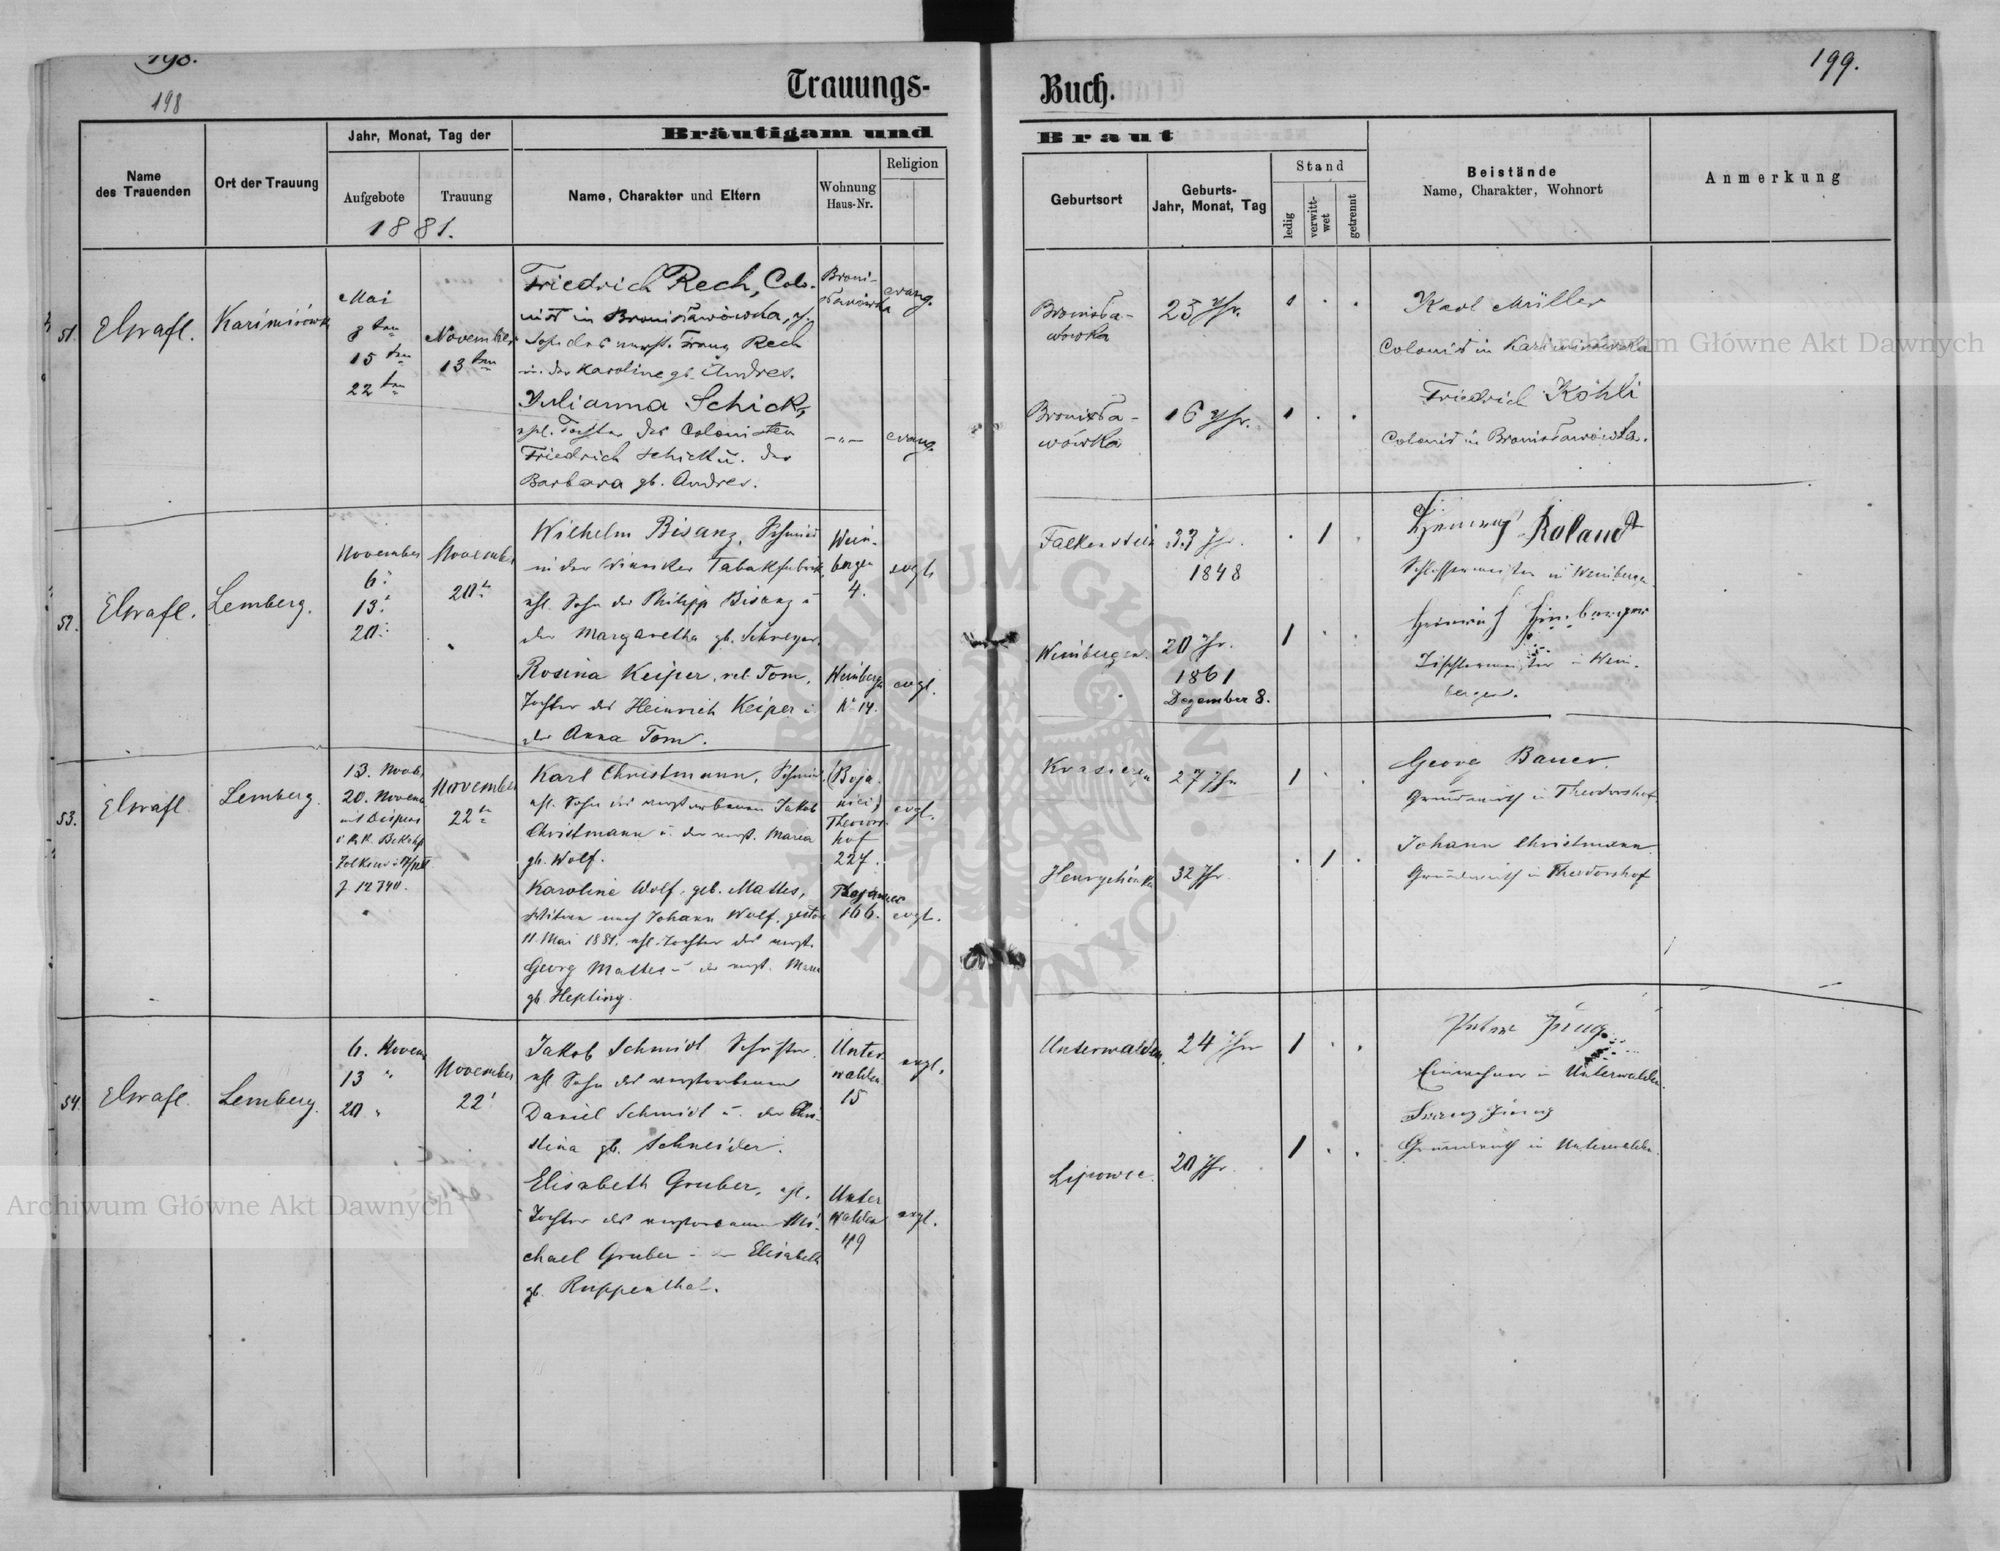 198.
198
199.
Trauungs-
Buch.
Name
des Trauenden
Ort der Trauung
Jahr, Monat, Tag der
Aufgebote
Trauung
1881.
Bräutigam und
Braut
Name, Charakter und Eltern
Wohnung
Haus-Nr.
Religion
Geburtsort
Geburts-
Jahr, Monat, Tag
Stand
ledig
verwitt-
wet
getrennt
Beistände
Name, Charakter, Wohnort
Anmerkung
51.
Mai
15ten
22ten
November
13ten
Friedrich Rech, Colo-
nist in Bronisławówka,
Franz Rech
u. der Karoline gb. Andres.
Broni-
sławówka
evang.
Bronisła-
wówka
1
Karl Müller
Colonist in
Julianna Schick,
Tochter des Colonisten
Friedrich Schick u. der
Barbara gb. Andres.
-"-
evang.
Bronisła-
wówka
16 Jhr.
1
Friedrich Köhli
Colonist in Bronisławówka.
52.
Lemberg.
November
6.
13.
20.
November
20.
Wilhelm Bisanz, Schmied
in der Winniker Tabakfabrik,
ehl. Sohn des Philipp Bisanz u.
der Margaretha gb. Schreyer.
Wein-
bergen
4.
evgl.
Falkenstein
33 Jhr.
1848
1
Roland
Schlossermeister in Weinbergen
Rosina Keiper, rel. Tom,
Tochter des Heinrich Keiper u.
der Anna Tom.
Weinbergen
No 14.
evgl.
Weinbergen.
20 Jhr.
1861
Dezember 8.
1
Heinrich
Tischlermeister in Wein-
bergen.
53.
Lemberg.
13. Novb.
20. Novem
mit Dispens
November
22
Karl Christmann, Schmied
ehl. Sohn des verstorbenen Jakob
Christmann u. der verst. Maria
gb. Wolf.
Theodors-
hof
227.
evgl.
27 Jhr
1
Georg Bauer
Grundwirth in Theodorshof
Karoline Wolf, geb. Mattes,
Witwe nach Johann Wolf, gestor.
11. Mai 1881, ehl. Tochter des verst.
Georg Mattes u. der verst. Maria
gb. Hepting.
166.
evgl.
32 Jhr.
1
Johann Christmann
Grundwirth in Theodorshof
54.
Lemberg.
6. Novem
13 "
20 "
November
22.
Jakob Schmidt, Schuster,
ehl. Sohn des verstorbenen
Daniel Schmidt u. der Chri-
stina gb. Schneider.
Unter
walden
15
evgl.
Unterwalden
24 Jhr
1
Peter Jung
Einwohner in Unterwalden.
Elisabeth Gruber, ehl.
Tochter des verstorbenen Mi-
chael Gruber u. der Elisabeth
gb. Ruppenthal.
Unter
walden
49
evgl.
Lipowce.
20 Jhr.
1
Franz Jung
Grundwirth in Unterwalden.
Archiwum Główne Akt Dawnych
Archiwum Główne Akt Dawnych
ARCHIWUM GŁÓWNE AKT DAWNYCH